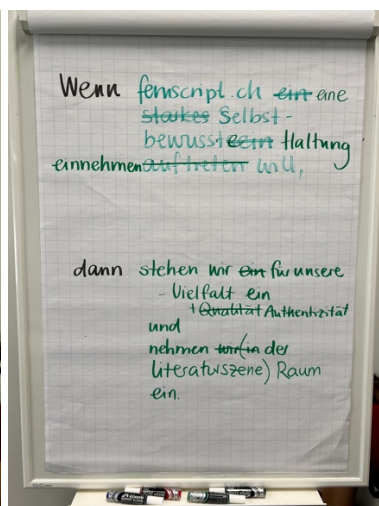 Wenn femscript.ch ein eine
starkes Selbst-
bewusstsein Haltung
einnehmen auftreten will,
dann stehen wir ein für unsere
- Vielfalt ein
+ Qualität Authentizität
und
nehmen wir (in der
Literaturszene) Raum
ein.